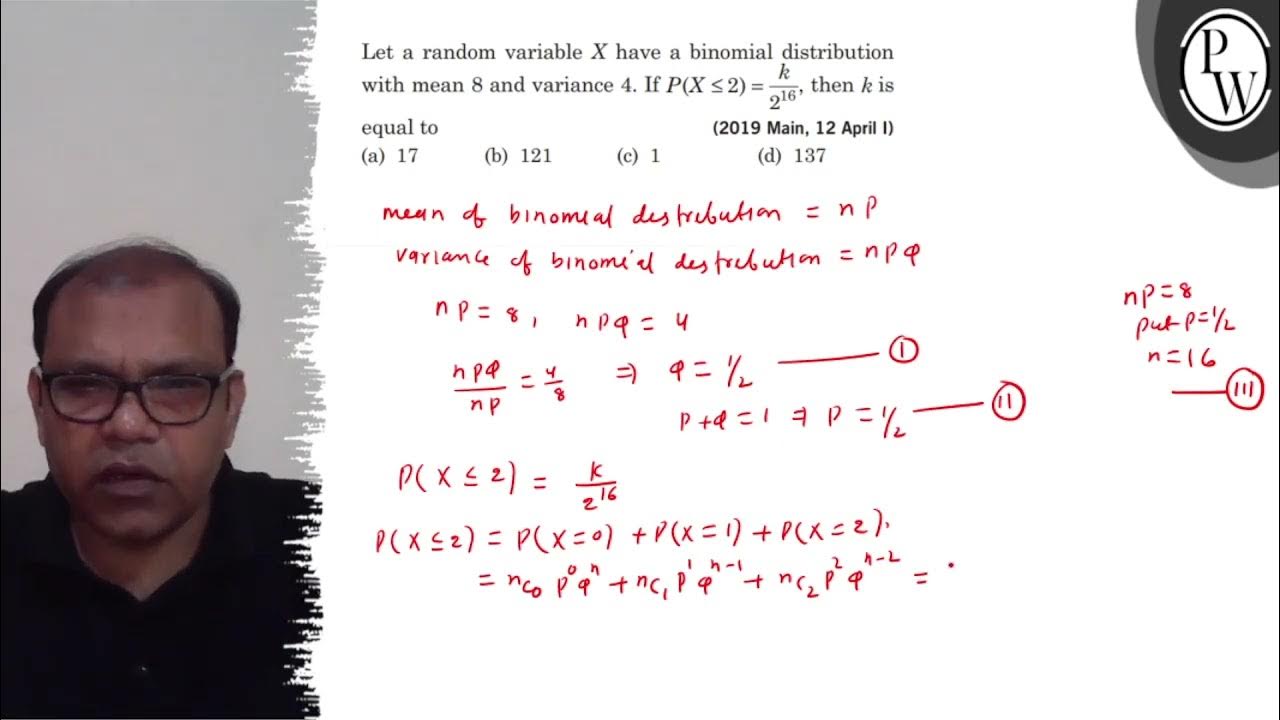 P
W
Let a random variable X have a binomial distribution
with mean 8 and variance 4. If P(X ≤ 2) = k/2^16, then k is
equal to (2019 Main, 12 April I)
(a) 17 (b) 121 (c) 1 (d) 137
mean of binomial destribution = np
variance of binomial destribution = npq
np = 8, npq = 4
npq/np = 4/8 ⇒ q = 1/2 — I
p + q = 1 ⇒ p = 1/2 — II
np = 8
put p = 1/2
n = 16
— III
P(X ≤ 2) = k/2^16
P(X ≤ 2) = P(X = 0) + P(X = 1) + P(X = 2).
= nC0 p^0 q^n + nC1 p^1 q^n-1 + nC2 p^2 q^n-2 =